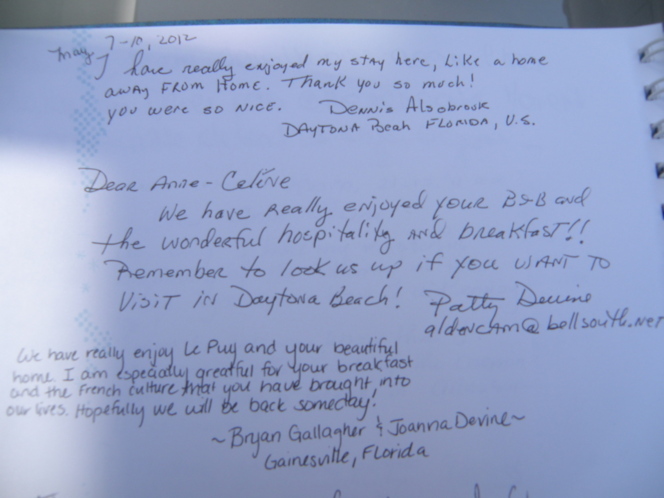 May 7-10, 2012
I have really enjoyed my stay here, Like a home
away from Home. Thank you so much!
you were so nice. Dennis Alsobrook
Daytona Beah Florida, U.S.
Dear Anne-Celine
We have really enjoyed your B&B and
the wonderful hospitality and breakfast!!
Remember to look us up if you want to
Visit in Daytona Beach! Patty Devine
@bellsouth.net
We have really enjoy Le Puy and your beautiful
home. I am especially greatful for your breakfast
and the French culture that you have brought into
our lives. Hopefully we will be back someday!
~Bryan Gallagher & Joanna Devine~
Gainesville, Florida